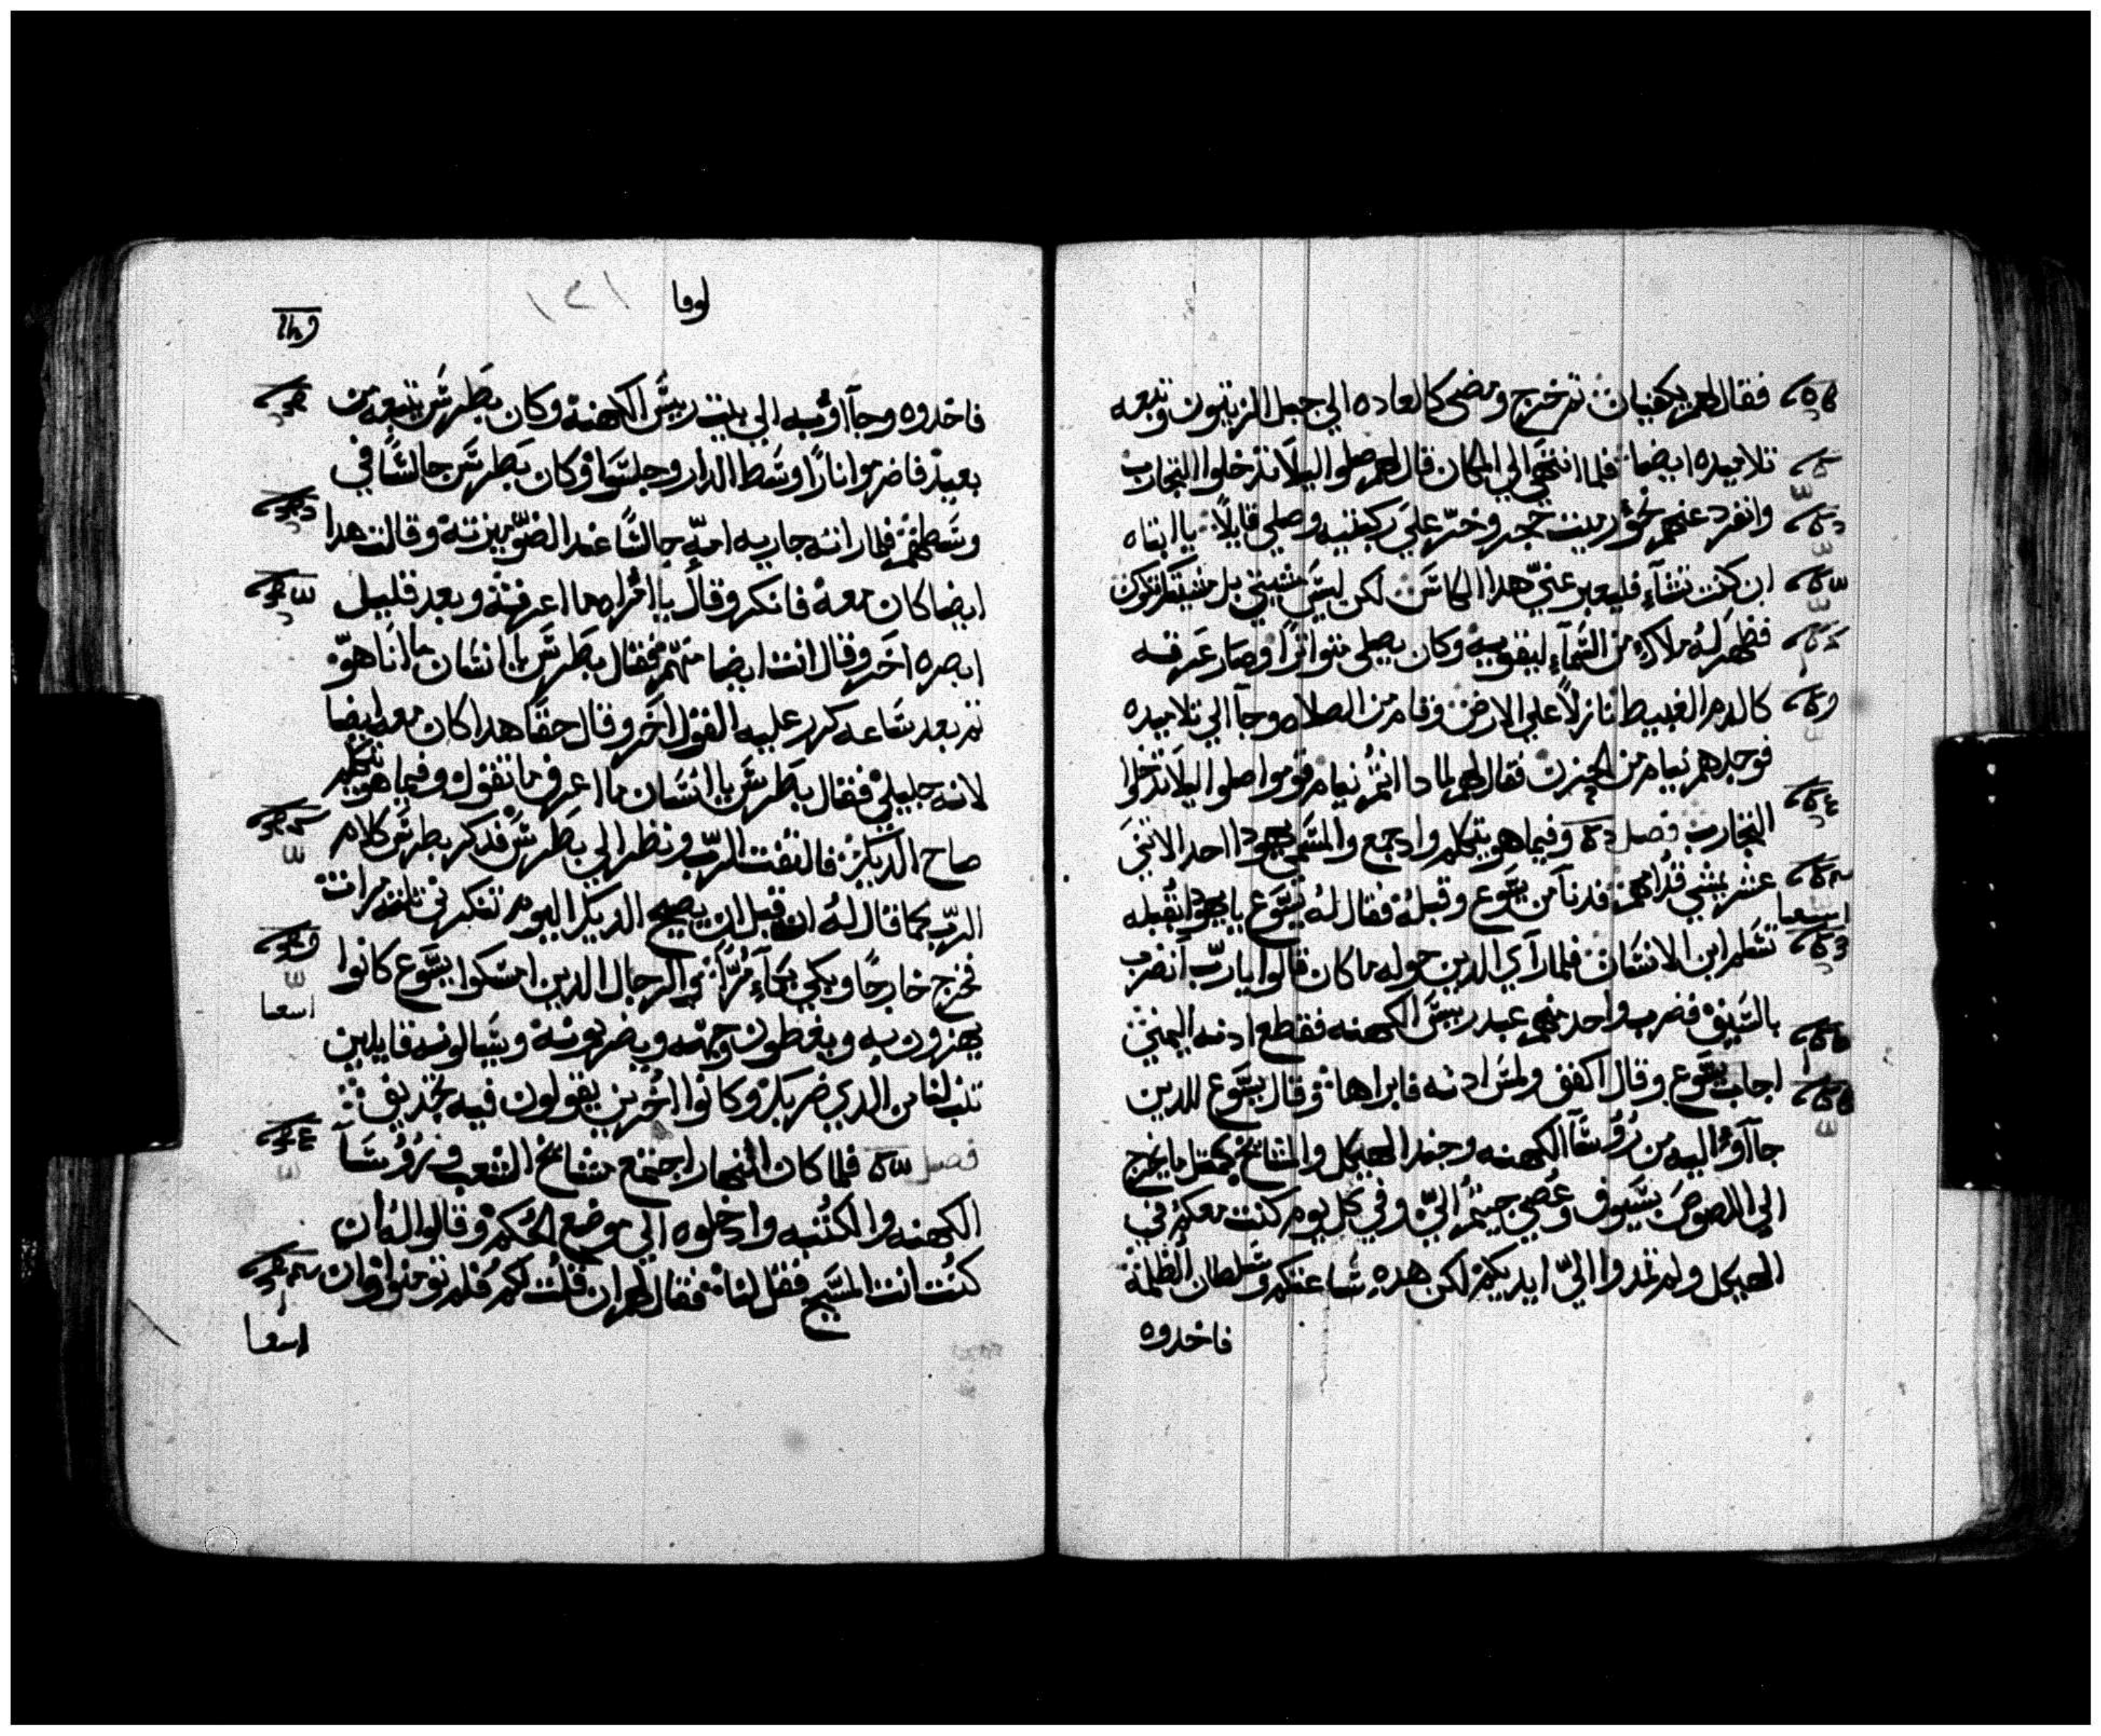 فقال لهم يكفيان ثم خرج ومضى كالعاده الي جبل الزيتون وتبعه
تلاميده ايضا فلما انتهي الي المكان قال لهم صلوا ليلا تدخلوا التجارب
وانفرد عنهم نحو رميت حجر وخر علي ركبتيه وصلي قايلا يا ابتاه
ان كنت تشآء فليعبر عني هدا الكاس لكن ليس مشيتي بل مشيتك تكون
فظهر له ملاك من السمآء ليقويه وكان يصلي متواترا وصار عرقه
كالدم الغبيط نازلا علي الارض وقام من الصلاه وجآ الي تلاميده
فوجدهم نيام من الحزن فقال لهم لمادا انتم نيام قوموا صلوا ليلا تدخلوا
التجارب فصل وفيما هو يتكلم وادا جمع والمسمي يهودا احد الاتني
عشر يمشي قدامهم فدنا من يسوع وقبله فقال له يسوع يا يهودا ابقبله
تسلم ابن الانسان فلما راي الدين حوله ما كان قالوا يا رب انضرب
بالسيف فضرب واحد منهم عبد رييس الكهنه فقطع ادنه اليمني
اجاب يسوع وقال اكفف ولمس ادنه فابراها وقال يسوع للدين
جآاوا اليه من رؤسآ الكهنه وجند الهيكل والمشايخ كمتل ما يخرج
الي اللصوص بسيوف وعصي جيتم الي وفي كل يوم كنت معكم في
الهيكل ولم تمدوا الي ايديكم لكن هده ساعتكم وسلطان الظلمة
فاخدوه
لوقا
فاخدوه وجآاوا به الي بيت رييس الكهنة وكان بطرس يتبعه من
بعيد فاضرموا نارا وسط الدار وجلسوا وكان بطرس جالسا في
وسطهم فلما راته جاريه امة جالسا عند الضو ميزته وقالت هدا
ايضا كان معه فانكر وقال يا امراه ما اعرفه وبعد قليل
ابصره اخر وقال انت ايضا منهم فقال بطرس يا انسان ما انا هو
تم بعد ساعه كرر عليه القول اخر وقال حقا هدا كان معه ايضا
لانه جليلي فقال بطرس يا انسان ما اعرف ما تقول وفيما هو يتكلم
صاح الديك فالتفت الرب ونظر الي بطرس فدكر بطرس كلام
الرب كما قال له ان قبل ان يصيح الديك اليوم تنكرني تلته مرات
فخرج خارجا وبكي بكآء مرا والرجال الدين امسكوا يسوع كانوا
يهزون به ويغطون وجهه ويضربونه ويسالونه قايلين
تنبا لنا من الدي ضربك وكانوا اخرين يقولون فيه تجديف
فصل فلما كان النهار اجتمع مشايخ الشعب ورؤسآ
الكهنه والكتبه وادخلوه الي موضع الحكم وقالوا له ان
كنت انت المسيح فقل لنا فقال لهم ان قلت لكم فلم تومنوا وان